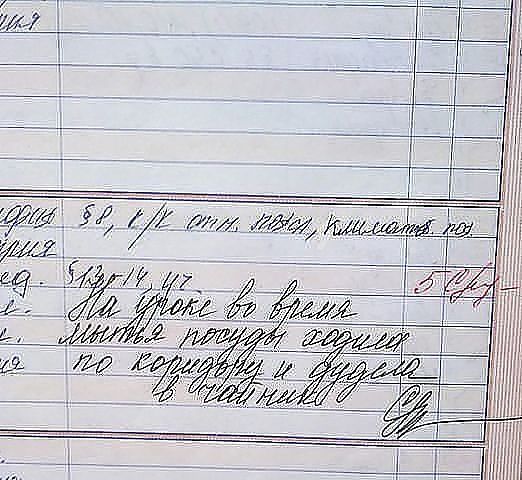 ия
§8, к/к отн. посл, климатов. поя
рия
ед. §13, 14, 47 5
На уроке во время
мытья посуды ходила
ия по коридору и дудела
в чайник